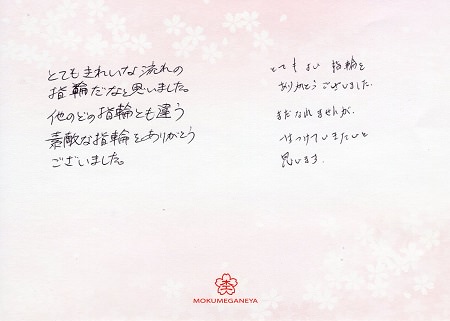 とてもきれいな流れの
指輪だなと思いました。
他のどの指輪とも違う
素敵な指輪をありがとう
ございました。
とても よい 指輪を
ありがとうございました。
まだなれませんが、
つけていきたいと
思います。
MOKUMEGANEYA